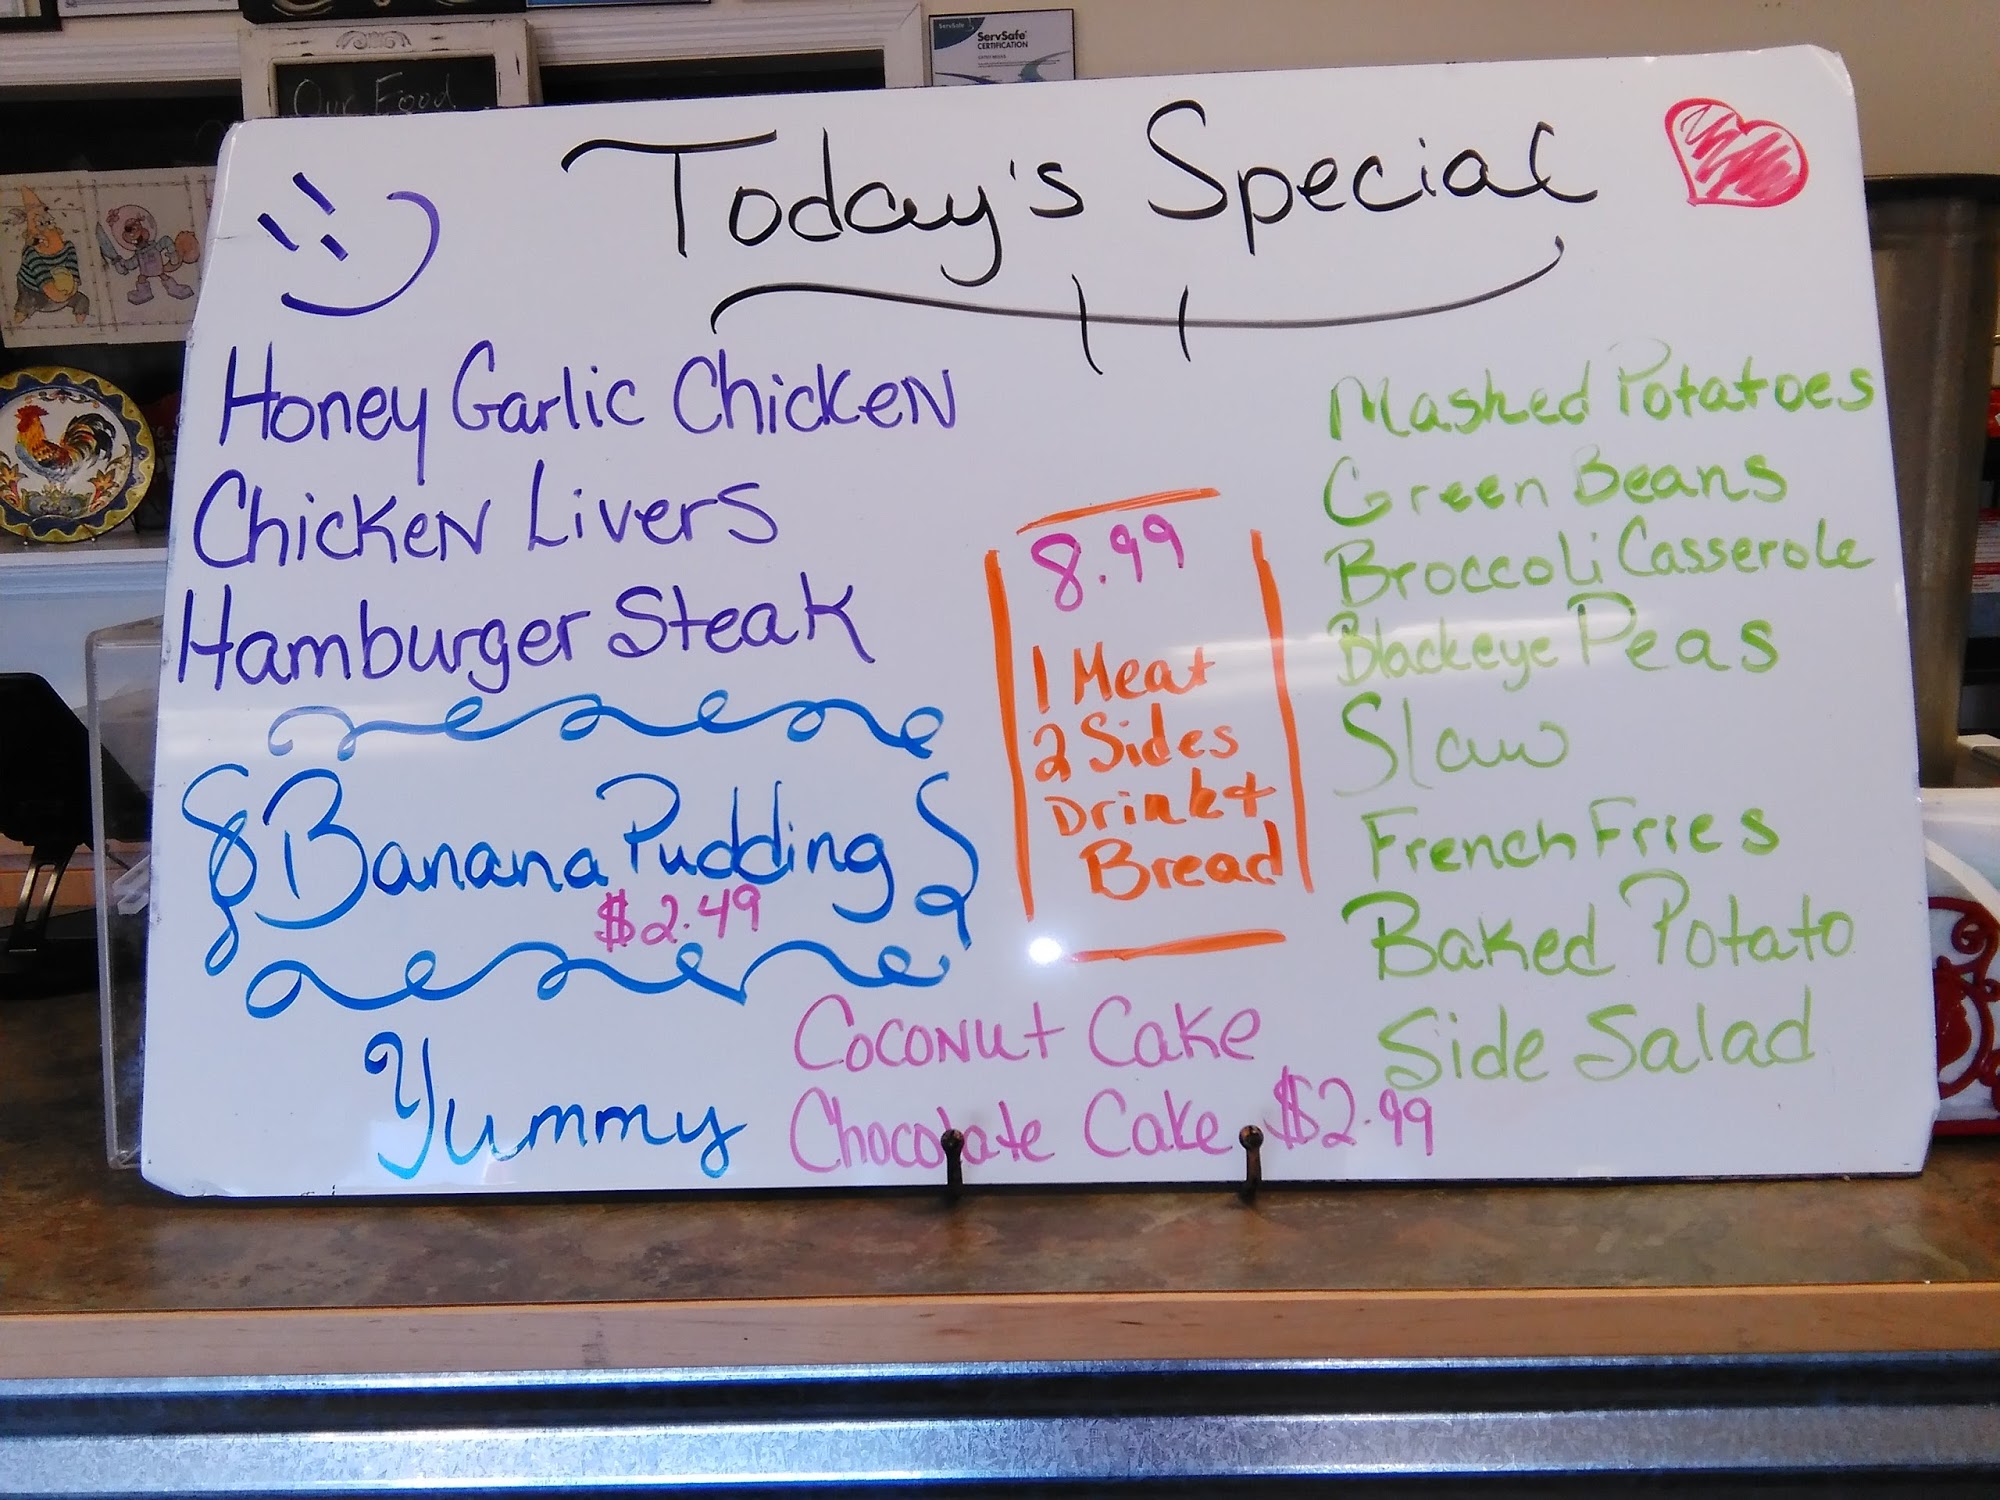 ServSafe
ServSafe
CERTIFICATION
Our Food
Today's Special
Honey Garlic Chicken
Chicken Livers
Hamburger Steak
Banana Pudding
$2.49
Yummy
8.99
1 Meat
2 Sides
Drink +
Bread
Coconut Cake
Chocolate Cake $2.99
Mashed Potatoes
Green Beans
Broccoli Casserole
Blackeye Peas
Slaw
French Fries
Baked Potato
Side Salad